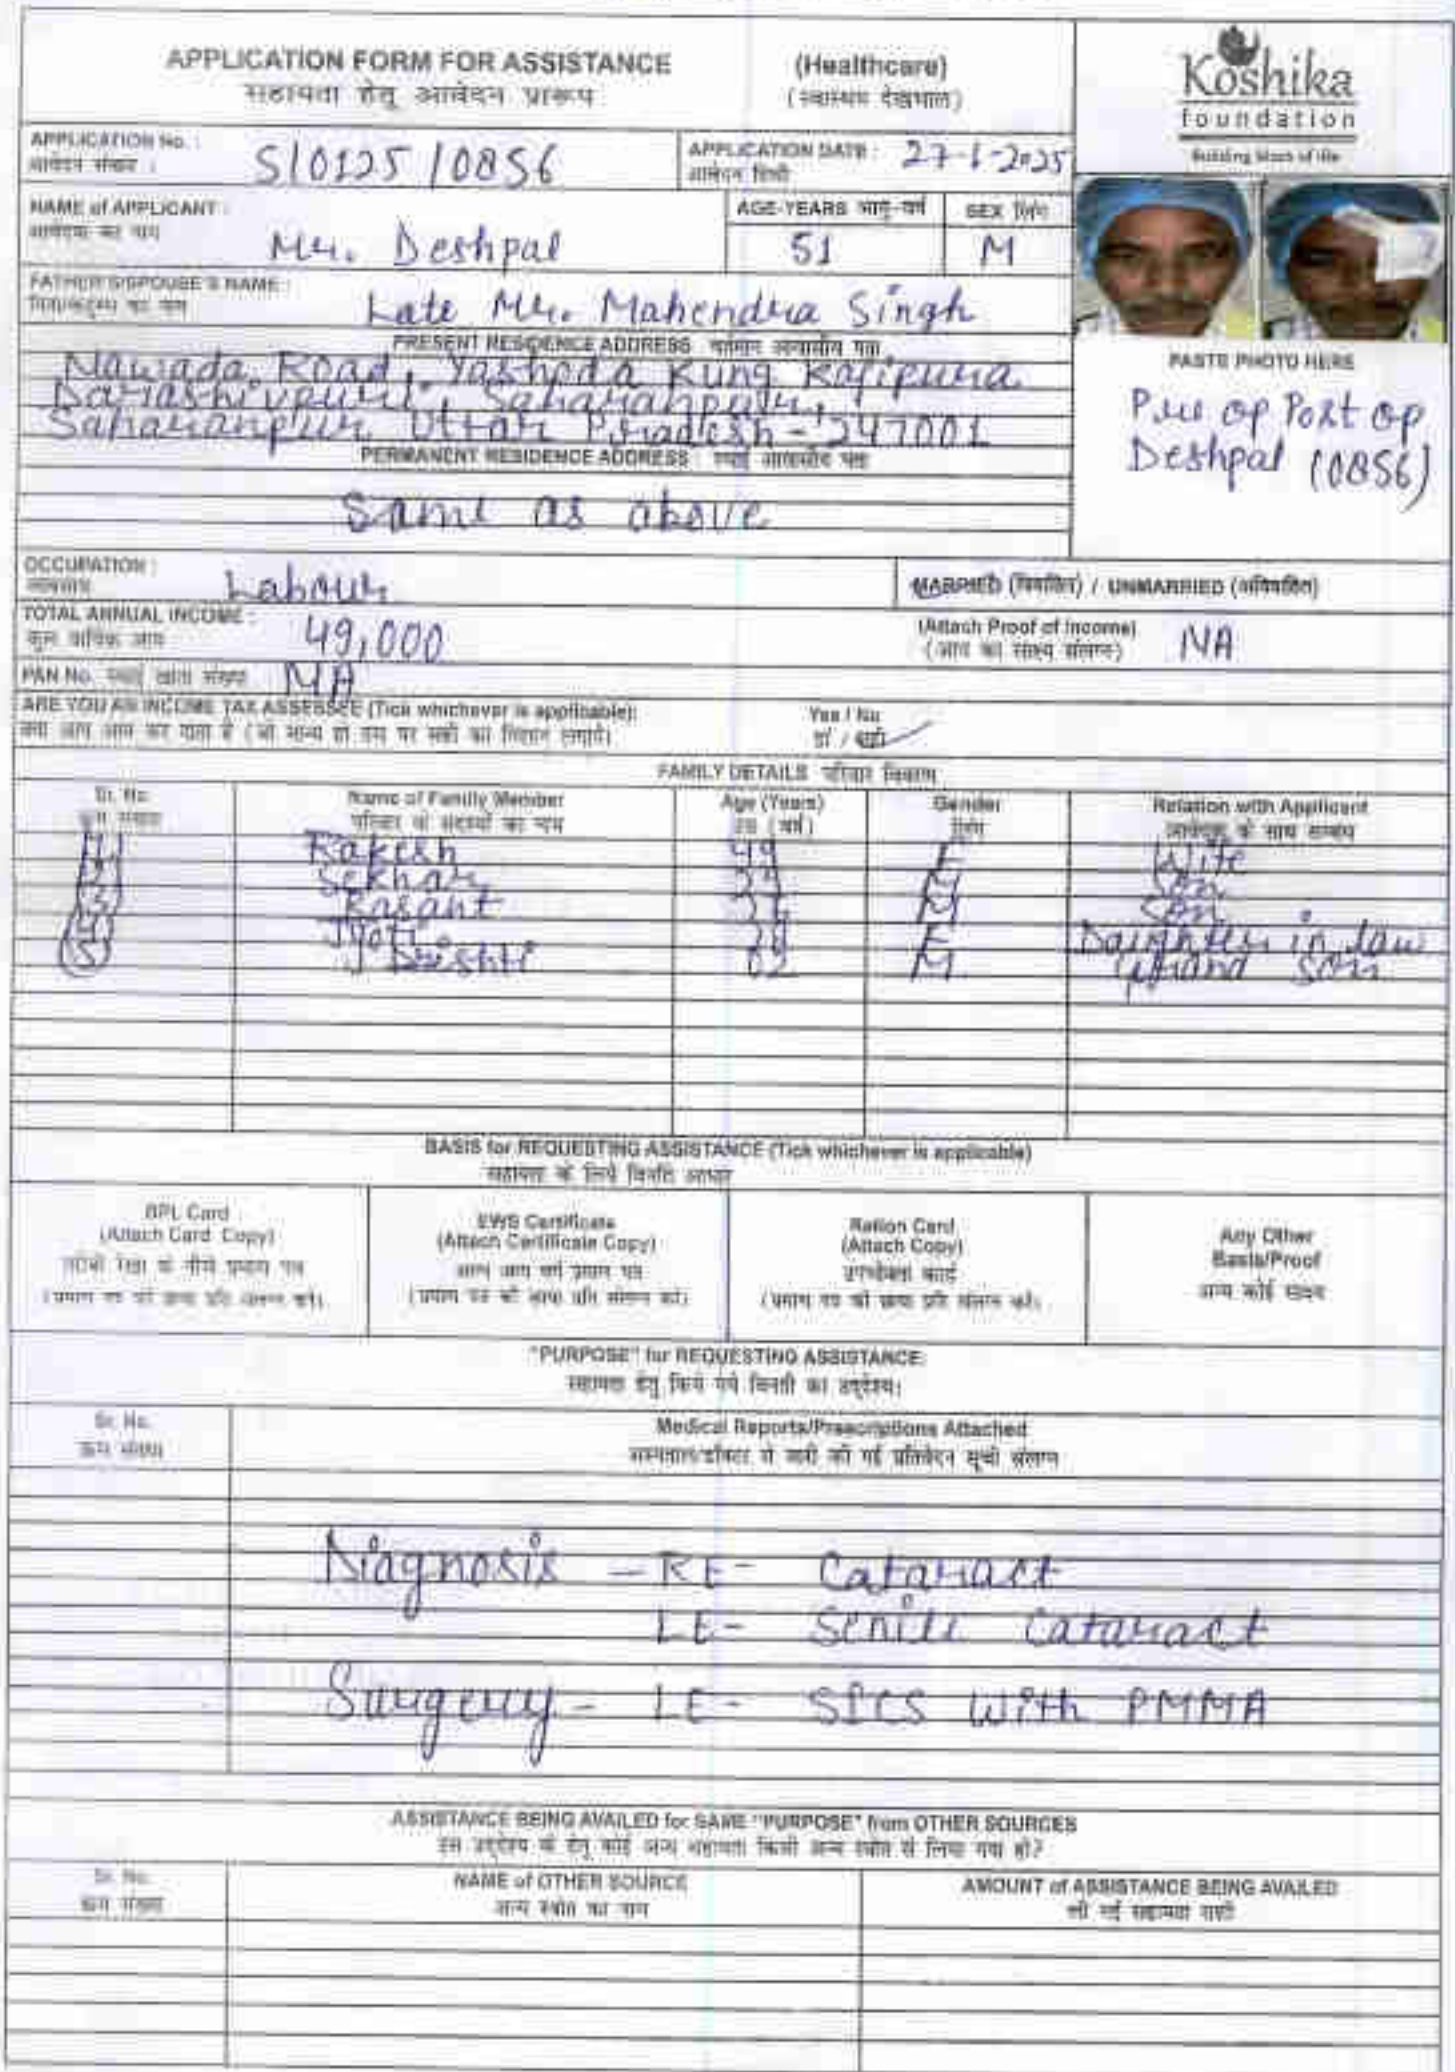 APPLICATION FORM FOR ASSISTANCE
सहायता हेतु आवेदन प्रारूप
(Healthcare)
(स्वास्थ्य देखभाल)
Koshika
foundation
Building block of life
APPLICATION No. :
आवेदन संख्या :
S/0125/0856
APPLICATION DATE :
आवेदन तिथी
27-1-2025
NAME of APPLICANT :
आवेदक का नाम
Mr. Deshpal
AGE-YEARS आयु-वर्ष
51
SEX लिंग
M
FATHER'S/SPOUSE'S NAME :
Late Mr. Mahendra Singh
PRESENT RESIDENCE ADDRESS वर्तमान आवासीय पता
Nawada Road, Yashoda Kung
Saharanpur,
Saharanpur Uttar Pradesh - 247001
PERMANENT RESIDENCE ADDRESS
Same as above
PASTE PHOTO HERE
Pre op Post op
Deshpal (0856)
OCCUPATION :
व्यवसाय
Labour
MARRIED (विवाहित) / UNMARRIED (अविवाहित)
TOTAL ANNUAL INCOME :
कुल वार्षिक आय
49,000
(Attach Proof of Income)
(आय का साक्ष्य संलग्न)
NA
PAN No. स्थाई खाता संख्या
NA
ARE YOU AN INCOME TAX ASSESSEE (Tick whichever is applicable):
क्या आप आय कर दाता है
Yes / No
हाँ / नहीं
FAMILY DETAILS परिवार विवरण
Sr. No.
क्रम संख्या
Name of Family Member
परिवार के सदस्यों का नाम
Age (Years)
उम्र (वर्ष)
Gender
लिंग
Relation with Applicant
आवेदक के साथ सम्बंध
(1) Rakesh 49 F Wife
(2) Sekhar M Son
(3) Basant M Son
(4) Jyoti F Daughter in law
(5) Drishti 02 M Grand Son
BASIS for REQUESTING ASSISTANCE (Tick whichever is applicable)
सहायता के लिये विनति आधार
BPL Card
(Attach Card Copy)
गरीबी रेखा के नीचे प्रमाण पत्र
(प्रमाण पत्र की छाया प्रति संलग्न करें)
EWS Certificate
(Attach Certificate Copy)
अल्प आय वर्ग प्रमाण पत्र
(प्रमाण पत्र की छाया प्रति संलग्न करें)
Ration Card
(Attach Copy)
उपभोक्ता कार्ड
(प्रमाण पत्र की छाया प्रति संलग्न करें)
Any Other
Basis/Proof
अन्य कोई साक्ष्य
"PURPOSE" for REQUESTING ASSISTANCE:
सहायता हेतु किये गये विनती का उद्देश्य:
Sr. No.
क्रम संख्या
Medical Reports/Prescriptions Attached
अस्पताल/डॉक्टर से जारी की गई प्रतिवेदन सूची संलग्न
Diagnosis - RE - Cataract
LE - Senile Cataract
Surgery - LE - SICS With PMMA
ASSISTANCE BEING AVAILED for SAME "PURPOSE" from OTHER SOURCES
इस उद्देश्य के हेतु कोई अन्य सहायता किसी अन्य स्त्रोत से लिया गया हो?
Sr. No.
क्रम संख्या
NAME of OTHER SOURCE
अन्य स्त्रोत का नाम
AMOUNT of ASSISTANCE BEING AVAILED
ली गई सहायता राशी